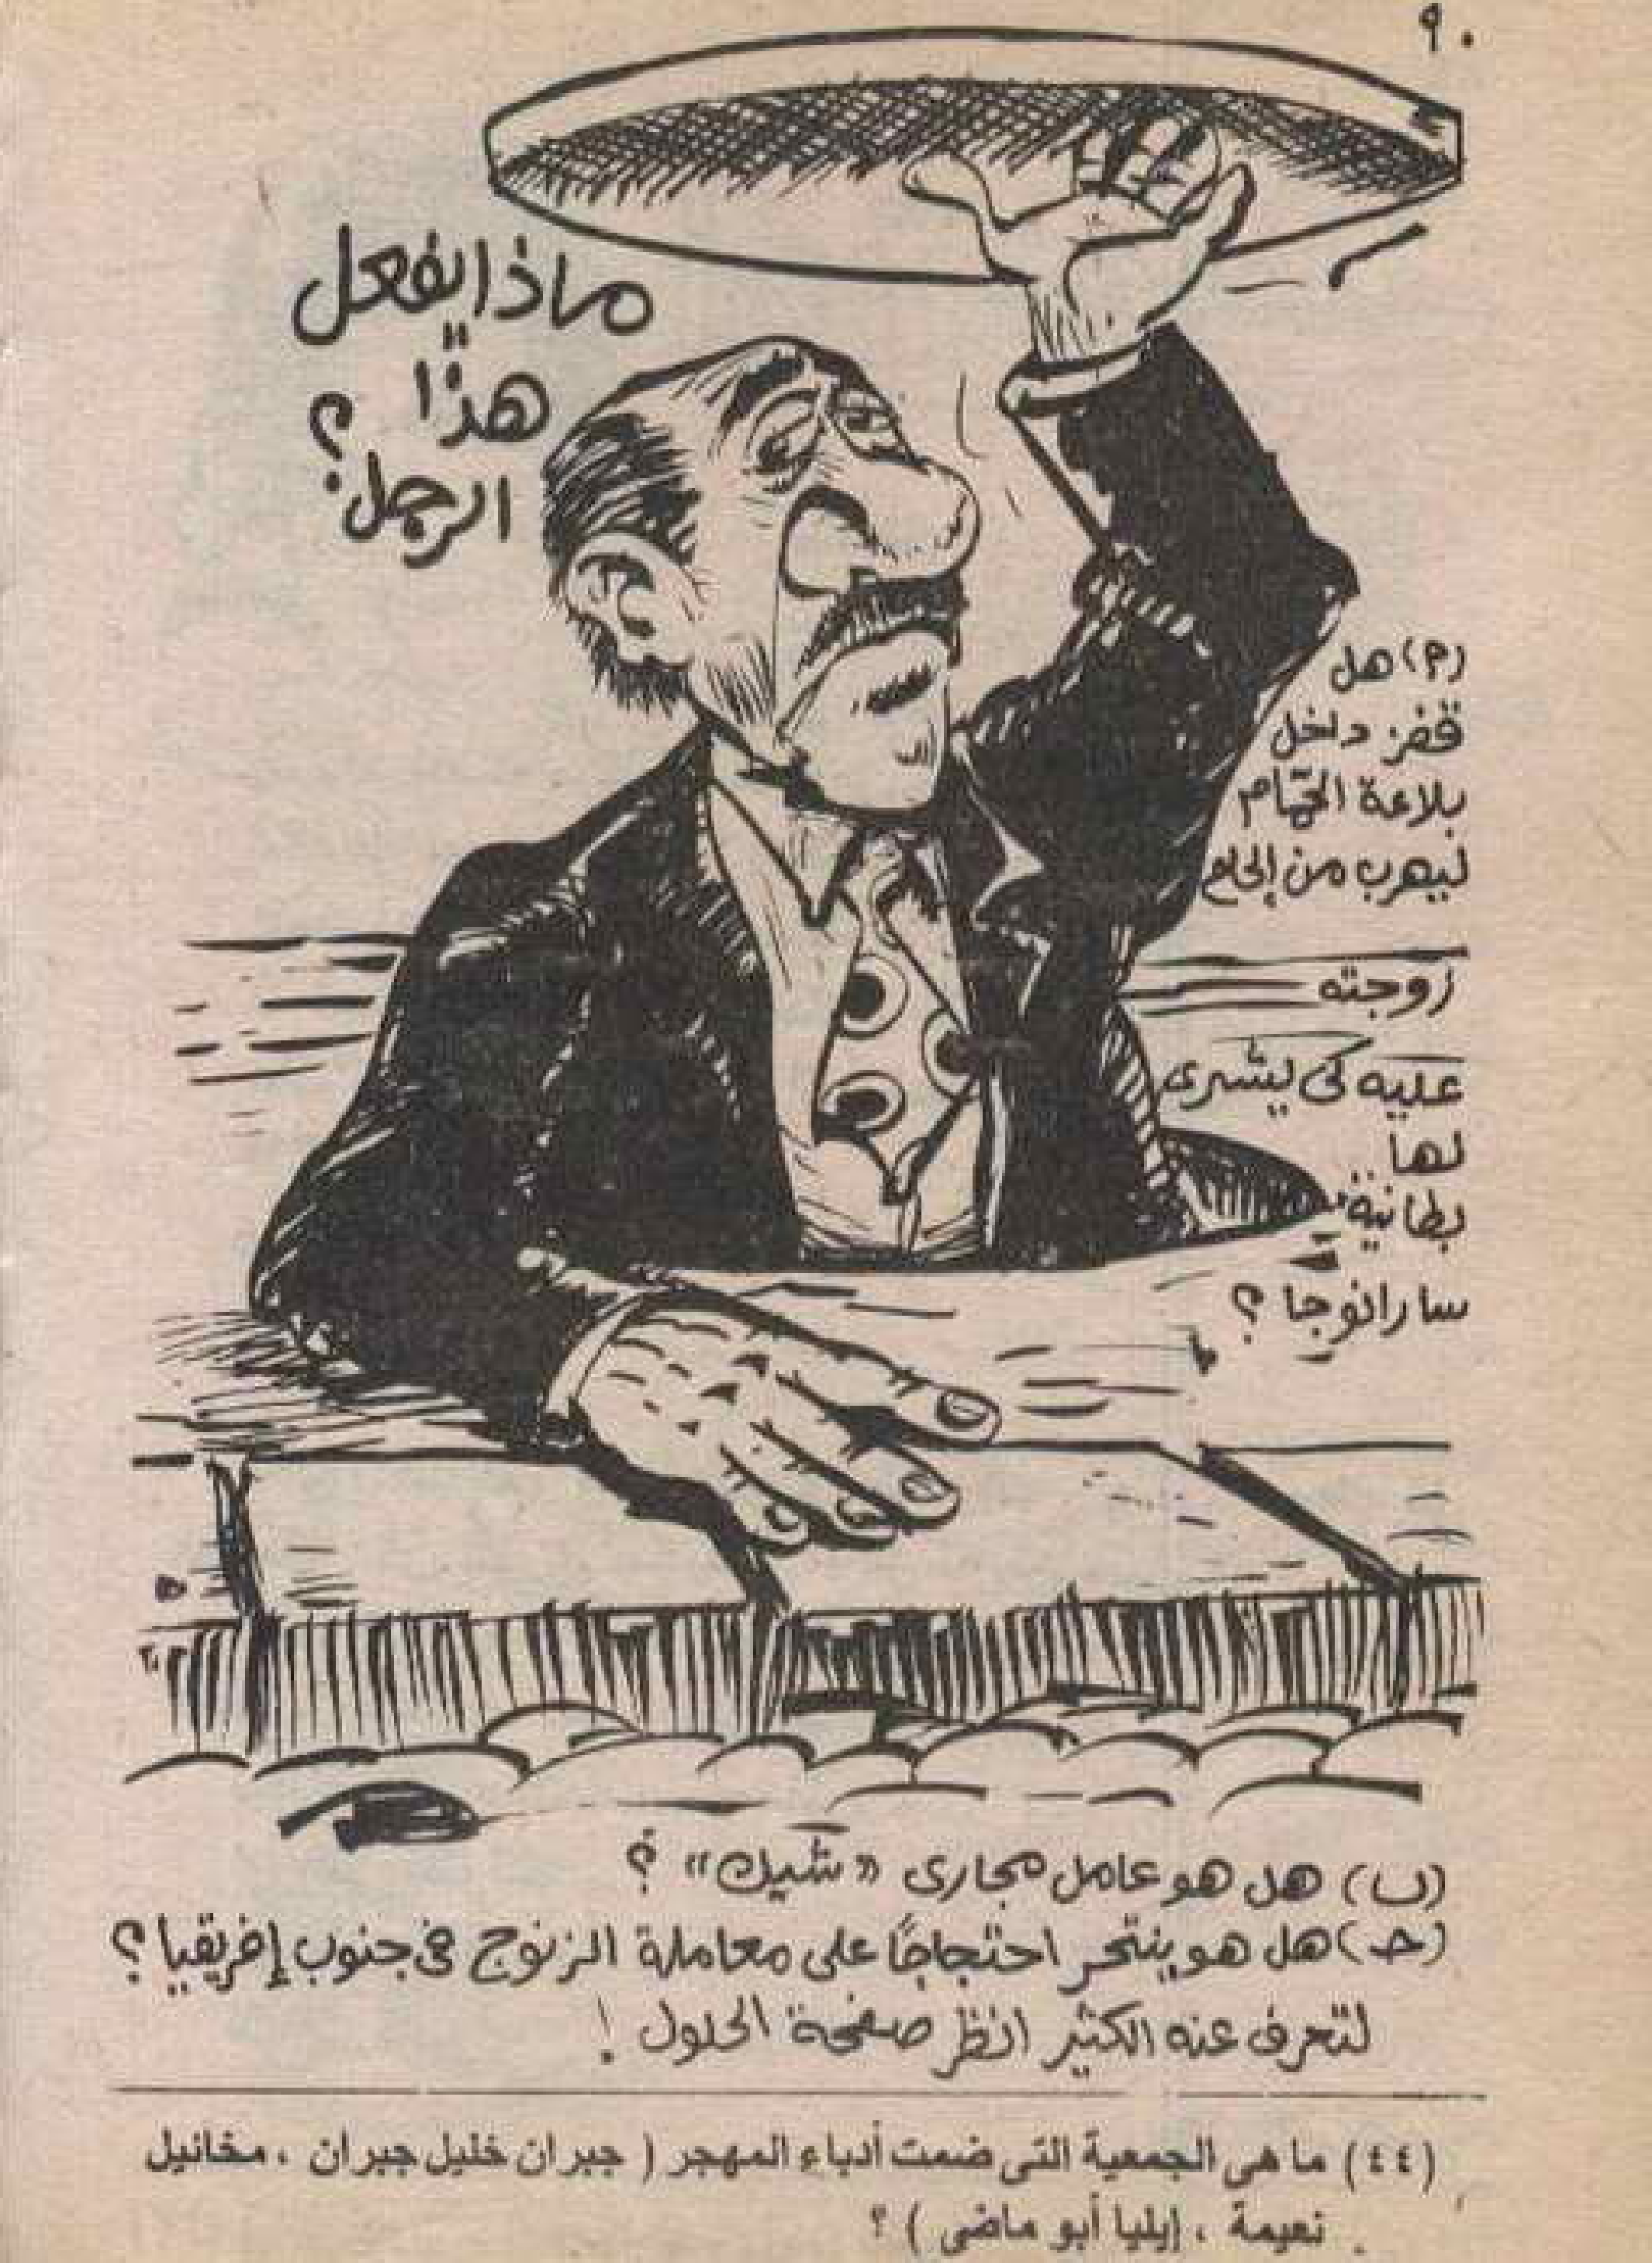 ٩٠
ماذا يفعل
هذا
الرجل؟
(م) هل
قفز داخل
بلاعة الحمام
ليهرب من إلحاح
زوجته
عليه كى يشترى
لها
بطانية
سارانوجا ؟
(ب) هل هو عامل مجارى «شيك» ؟
(حـ) هل هو ينتحر احتجاجًا على معاملة الزنوج فى جنوب إفريقيا ؟
لتعرف عنه الكثير انظر صفحة الحلول !
(٤٤) ما هى الجمعية التى ضمت أدباء المهجر ( جبران خليل جبران ، مخائيل
نعيمة ، إيليا أبو ماضى ) ؟